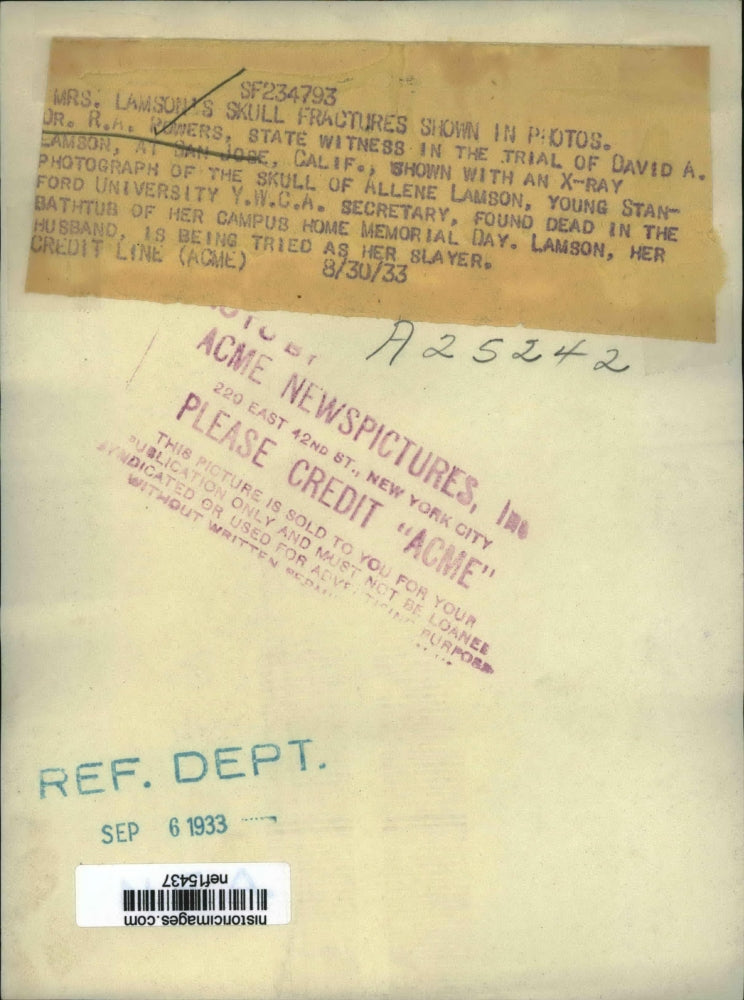 SF234793
MRS. LAMSON'S SKULL FRACTURES SHOWN IN PHOTOS.
DR. R.A. POWERS, STATE WITNESS IN THE TRIAL OF DAVID A.
LAMSON, AT SAN JOSE, CALIF., SHOWN WITH AN X-RAY
PHOTOGRAPH OF THE SKULL OF ALLENE LAMSON, YOUNG STAN-
FORD UNIVERSITY Y.W.C.A. SECRETARY, FOUND DEAD IN THE
BATHTUB OF HER CAMPUS HOME MEMORIAL DAY. LAMSON, HER
HUSBAND, IS BEING TRIED AS HER SLAYER.
CREDIT LINE (ACME) 8/30/33
A25242
ACME NEWSPICTURES, Inc
220 EAST 42ND ST., NEW YORK CITY
PLEASE CREDIT "ACME"
THIS PICTURE IS SOLD TO YOU FOR YOUR
PUBLICATION ONLY AND MUST NOT BE LOANED
SYNDICATED OR USED FOR ADVERTISING PURPOSE
WITHOUT WRITTEN
REF. DEPT.
SEP 6 1933
historicimages.com
nef15437